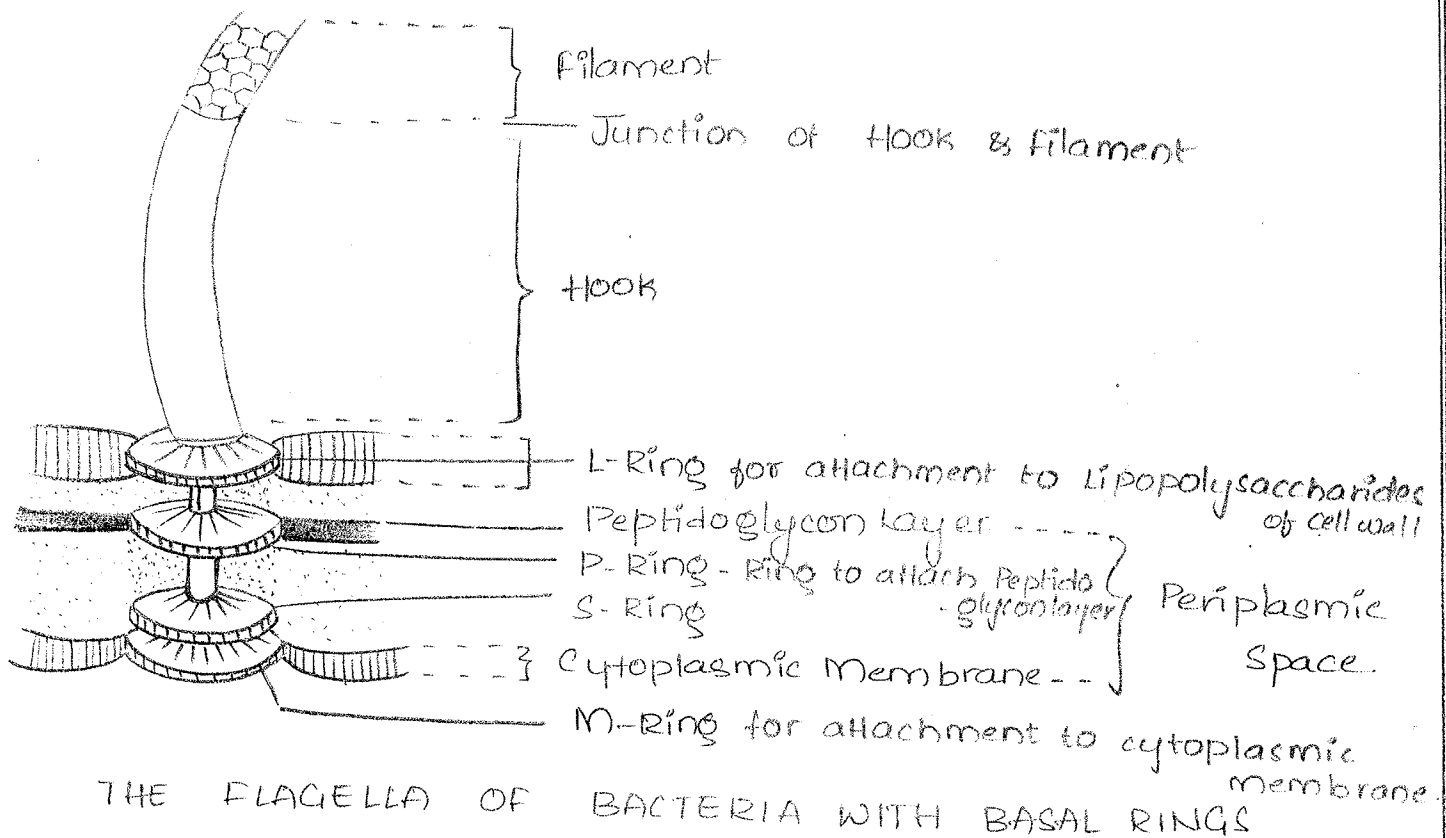 Filament
Junction of Hook & Filament
Hook
L-Ring for attachment to Lipopolysaccharides
of Cell wall
Peptidoglycon Layer
P-Ring - Ring to attach Peptido
- glyconlayer
S-Ring
Periplasmic
Space.
Cytoplasmic Membrane
M-Ring for attachment to cytoplasmic
membrane.
THE FLAGELLA OF BACTERIA WITH BASAL RINGS